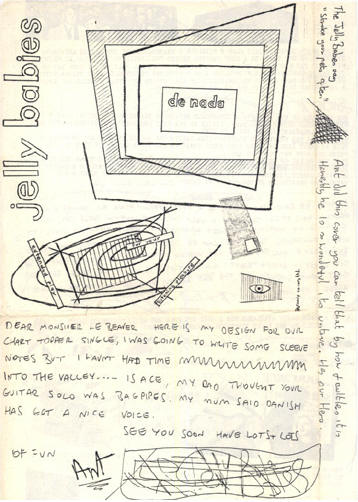 jelly babies
de nada
The Jelly Babies say
"Stroke your pets often."
Ant did this cover you can tell that by how it is
Honestly he is so wonderful its untrue. He's our Hero.
DEAR MONSIEUR LE BEAVER HERE IS MY DESIGN FOR OUR
CHART TOPPER SINGLE, I WAS GOING TO WRITE SOME SLEEVE
NOTES BUT I HAVNT HAD TIME
INTO THE VALLEY.... IS ACE, MY DAD THOUGHT YOUR
GUITAR SOLO WAS BAGPIPES. MY MUM SAID DANISH
HAS GOT A NICE VOICE.
SEE YOU SOON HAVE LOTS + LOTS
OF FUN
ANT